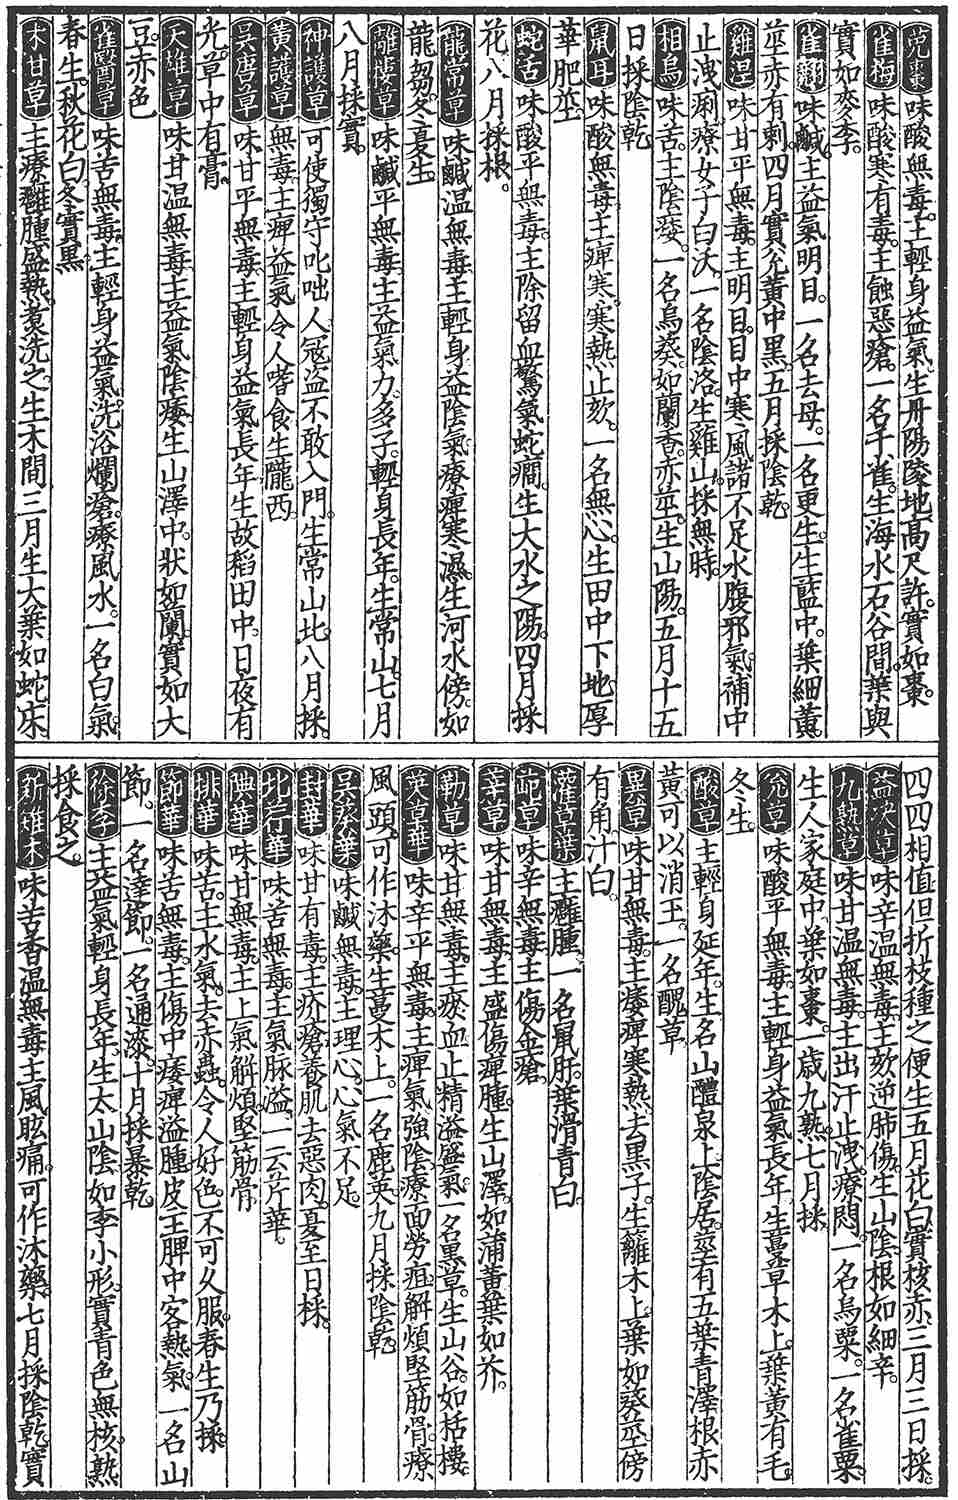 兗棗味酸無毒主輕身益氣生丹陽陵地高尺許實如棗
雀梅味酸寒有毒主蝕惡瘡一名千雀生海水石谷間葉與
實如麥李
雀翹味鹹主益氣明目一名去母一名更生生藍中葉細黃
莖赤有刺四月實兌黃中黑五月採陰乾
雞涅味甘平無毒主明目目中寒風諸不足水腹邪氣補中
止洩痢療女子白沃一名陰洛生雞山採無時
相烏味苦主陰痿一名烏葵如蘭香赤莖生山陽五月十五
日採陰乾
鼠耳味酸無毒主痹寒寒熱止欬一名無心生田中下地厚
華肥莖
蛇舌味酸平無毒主除留血驚氣蛇癇生大水之陽四月採
花八月採根
龍常草味鹹溫無毒主輕身益陰氣療痹寒濕生河水傍如
龍芻冬夏生
離樓草味鹹平無毒主益氣力多子輕身長年生常山七月
八月採實
神護草可使獨守叱咄人寇盜不敢入門生常山北八月採
黃護草無毒主痹益氣令人嗜食生隴西
吳唐草味甘平無毒主輕身益氣長年生故稻田中日夜有
光草中有膏
天雄草味甘溫無毒主益氣陰痿生山澤中狀如蘭實如大
豆赤色
雀醫草味苦無毒主輕身益氣洗浴爛瘡療風水一名白氣
春生秋花白冬實黑
木甘草主療癰腫盛熱煮洗之生木間三月生大葉如蛇床
四四相值但折枝種之便生五月花白實核赤三月三日採
益決草味辛溫無毒主欬逆肺傷生山陰根如細辛
九熟草味甘溫無毒主出汗止洩療悶一名烏粟一名雀粟
生人家庭中葉如棗一歲九熟七月採
兌草味酸平無毒主輕身益氣長年生蔓草木上葉黃有毛
冬生
酸草主輕身延年生名山醴泉上陰居莖有五葉青澤根赤
黃可以消玉一名醜草
異草味甘無毒主痿痹寒熱去黑子生籬木上葉如葵莖傍
有角汁白
灌草葉主癰腫一名鼠肝葉滑青白
茈草味辛無毒主傷金瘡
莘草味甘無毒主盛傷痹腫生山澤如蒲黃葉如芥
勒草味甘無毒主瘀血止精溢盛氣一名黑草生山谷如栝樓
英草華味辛平無毒主痹氣強陰療面勞疽解煩堅筋骨療
風頭可作沐藥生蔓木上一名鹿英九月採陰乾
吳葵華味鹹無毒主理心心氣不足
封華味甘有毒主疥瘡養肌去惡肉夏至日採
北荇華味苦無毒主氣脉溢一云芹華
腆華味甘無毒主上氣解煩堅筋骨
排華味苦主水氣去赤蟲令人好色不可久服春生乃採
節華味苦無毒主傷中痿痹溢腫皮主脾中客熱氣一名山
節一名達節一名通漆十月採暴乾
徐李主益氣輕身長年生太山陰如李小形實青色無核熟
採食之
新雉木味苦香溫無毒主風眩痛可作沐藥七月採陰乾實